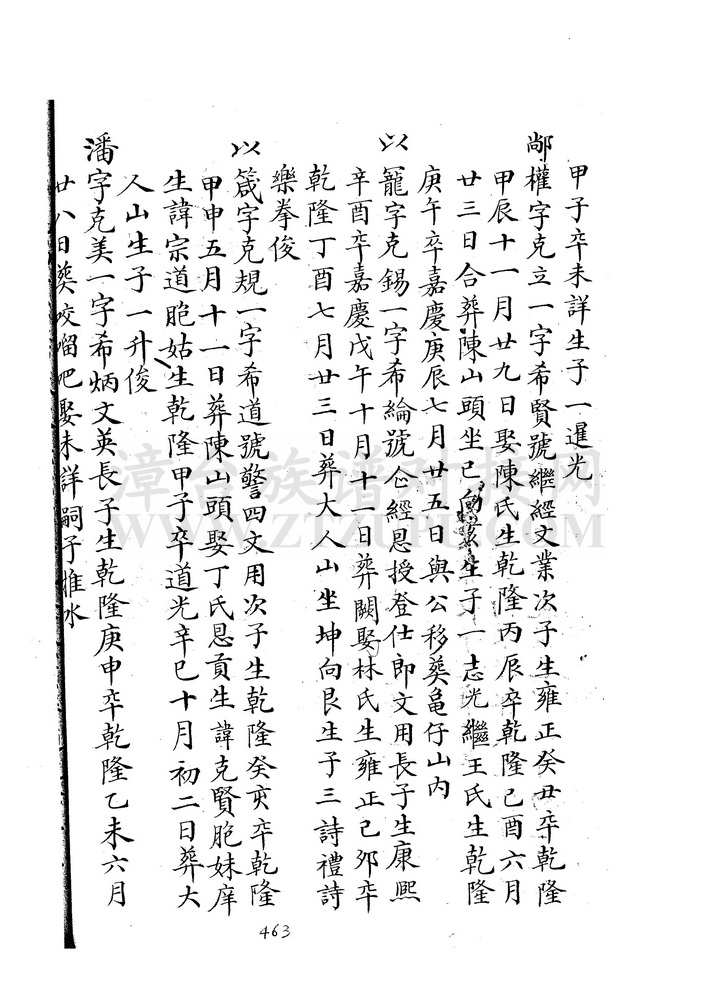 甲子卒未詳生子一暹光
鄗權字克立一字希賢號繼經文業次子生雍正癸丑卒乾隆
甲辰十一月廿九日娶陳氏生乾隆丙辰卒乾隆己酉六月
廿三日合葬陳山頭坐巳向生子一志光繼王氏生乾隆
庚午卒嘉慶庚辰七月廿五日與公移葬龜仔山內
以寵字克錫一字希綸號仚經恩授登仕郎文用長子生康熙
辛酉卒嘉慶戊午十月十一日葬闕娶林氏生雍正己夘卒
乾隆丁酉七月廿三日葬大人山坐坤向艮生子三詩禮詩
樂拳俊
以箴字克規一字希道號警四文用次子生乾隆癸亥卒乾隆
甲申五月十一日葬陳山頭娶丁氏恩貢生諱克賢胞妹庠
生諱宗道胞姑生乾隆甲子卒道光辛巳十月初二日葬大
人山生子一升俊
潘字克美一字希炳文英長子生乾隆庚申卒乾隆乙未六月
廿八日葬咬𠺕吧娶未詳嗣子推水
463
漳台族谱对接网
WWW.ZTZUPU.COM